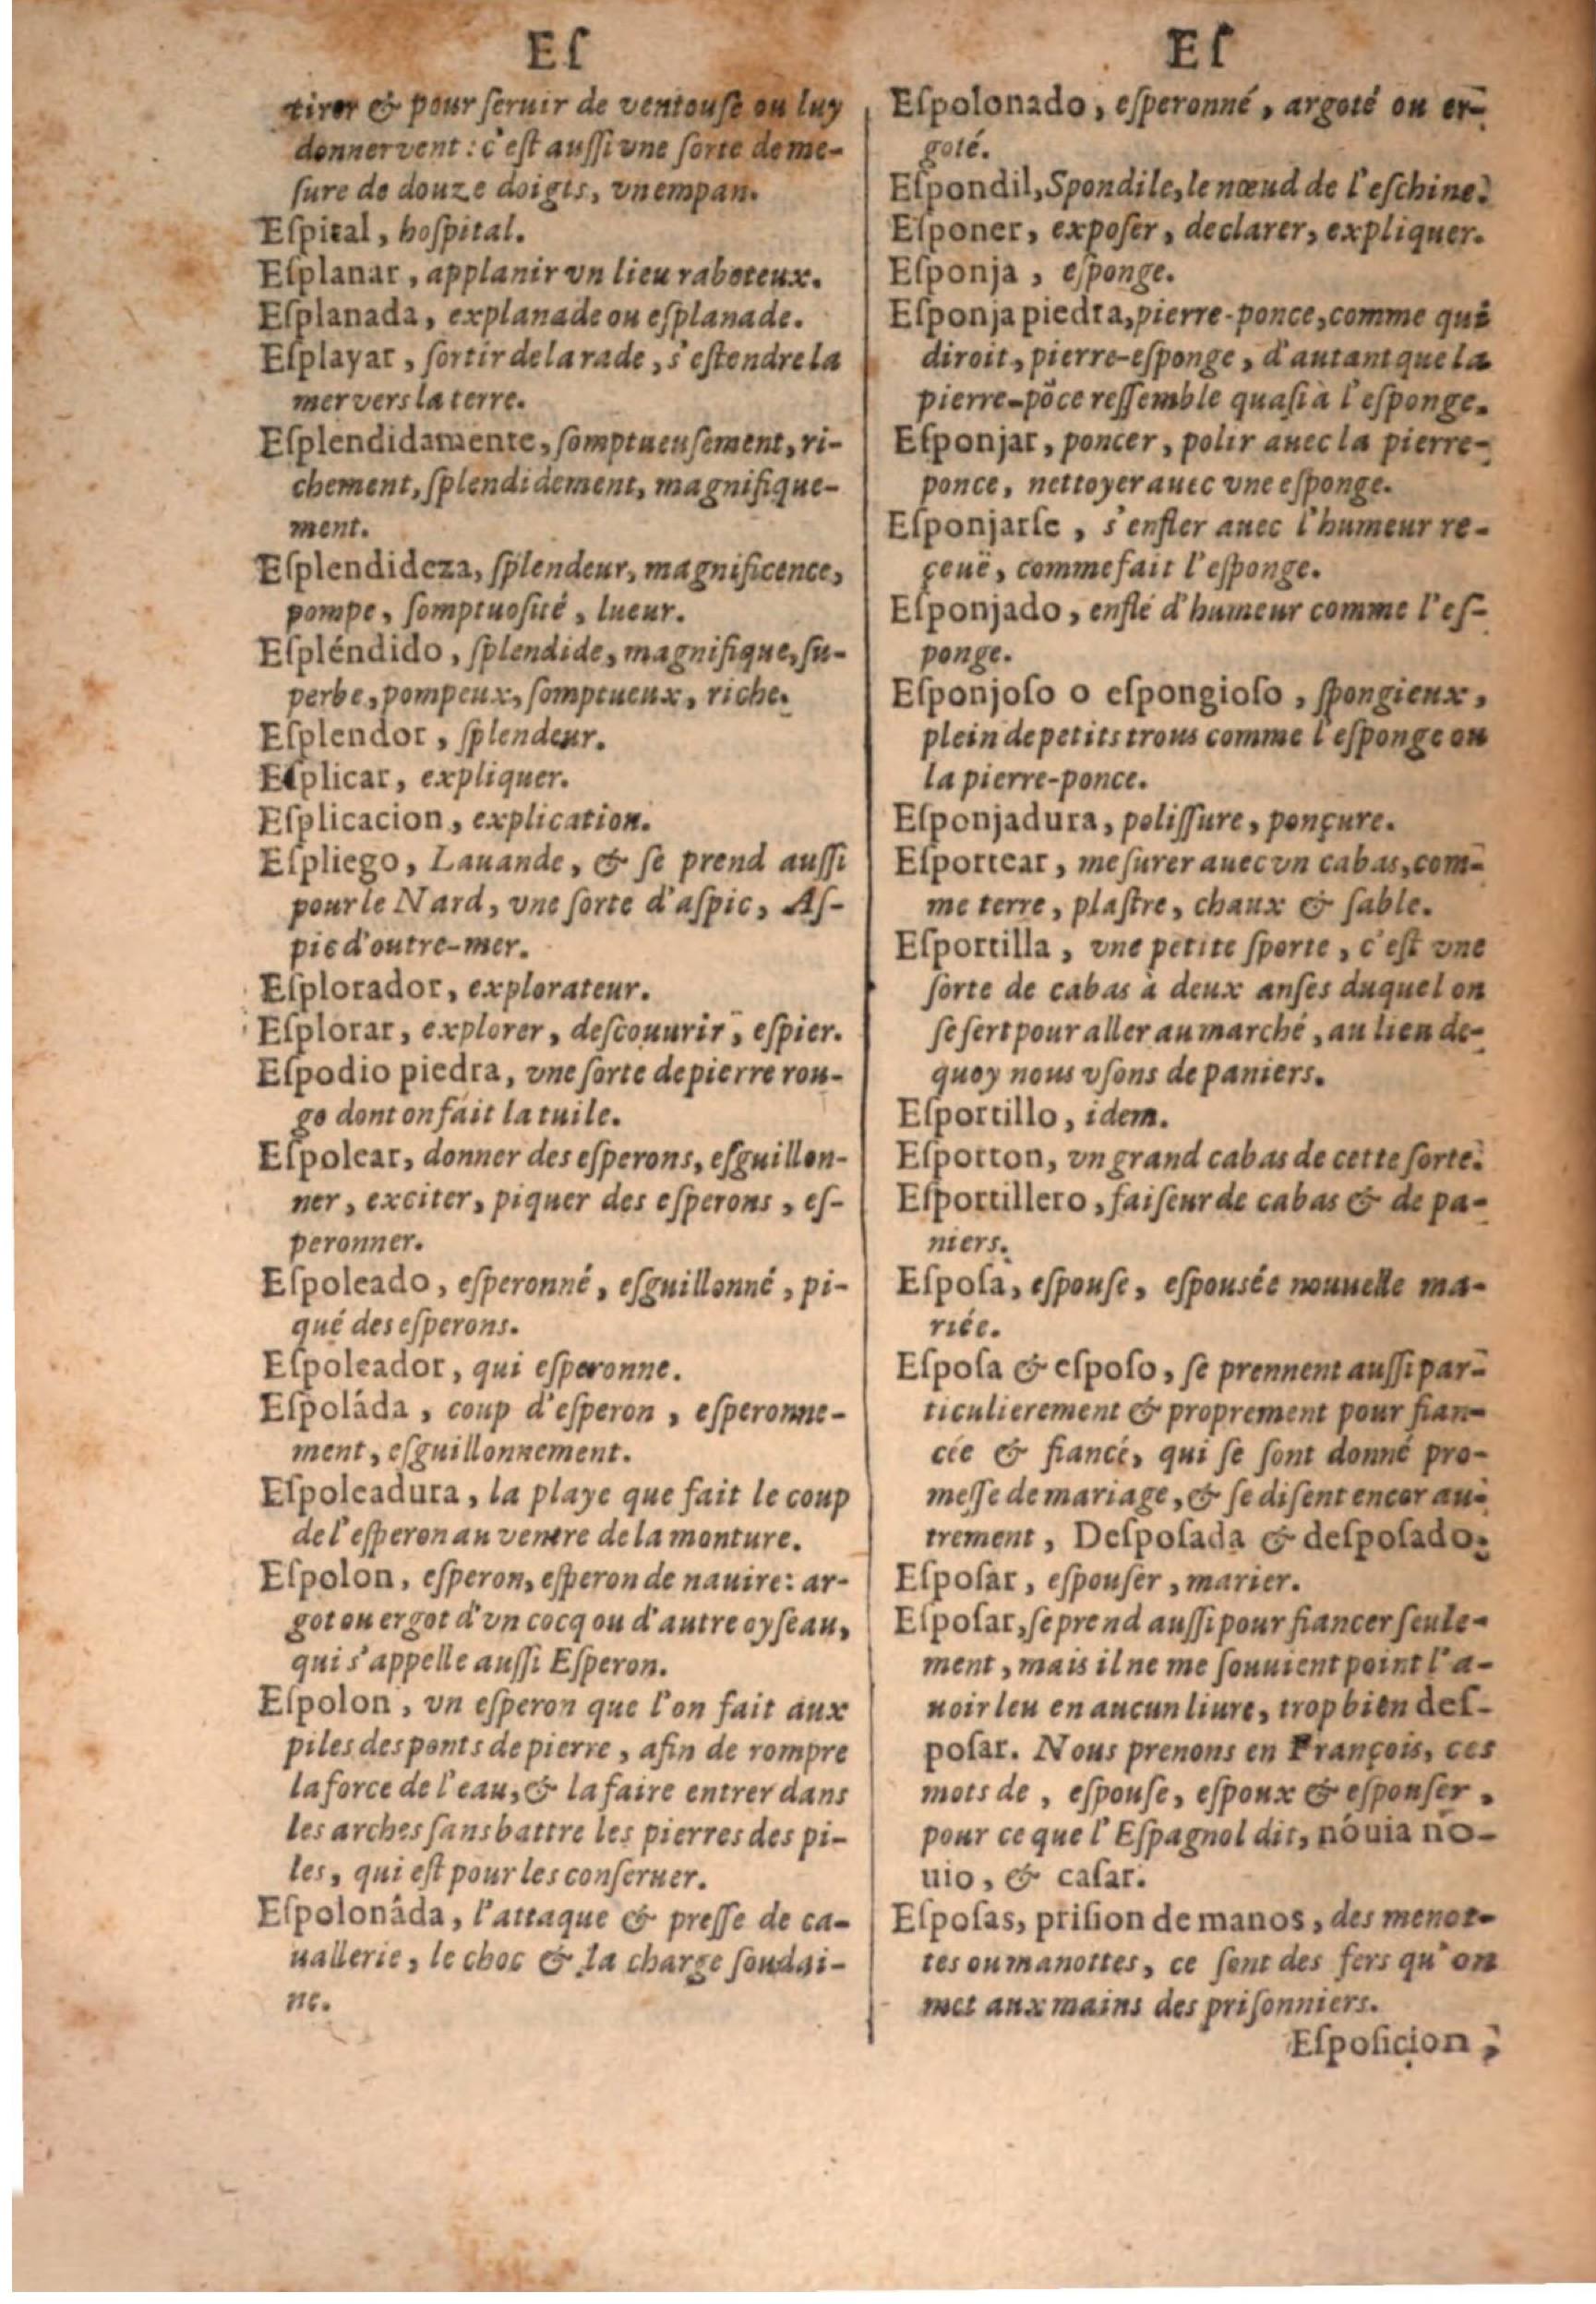 Eſ
tirer & pour ſeruir de ventouſe ou luy
donner vent : c'eſt auſſi vne ſorte de me-
ſure de douze doigts, vn empan.
Eſpital, hoſpital.
Eſplanar, applanir vn lieu raboteux.
Eſplanada, explanade ou eſplanade.
Eſplayar, ſortir de la rade, s'eſtendre la
mer vers la terre.
Eſplendidamente, ſomptueuſement, ri-
chement, ſplendidement, magnifique-
ment.
Eſplendideza, ſplendeur, magnificence,
pompe, ſomptuoſité, lueur.
Eſpléndido, ſplendide, magnifique, ſu-
perbe, pompeux, ſomptueux, riche.
Eſplendor, ſplendeur.
Eſplicar, expliquer.
Eſplicacion, explication.
Eſpliego, Lauande, & ſe prend auſſi
pour le Nard, vne ſorte d'aſpic, Aſ-
pic d'outre-mer.
Eſplorador, explorateur.
Eſplorar, explorer, deſcouurir, eſpier.
Eſpodio piedra, vne ſorte de pierre rou-
ge dont on fait la tuile.
Eſpolear, donner des eſperons, eſguillon-
ner, exciter, piquer des eſperons, eſ-
peronner.
Eſpoleado, eſperonné, eſguillonné, pi-
qué des eſperons.
Eſpoleador, qui eſperonne.
Eſpoláda, coup d'eſperon, eſperonne-
ment, eſguillonnement.
Eſpoleadura, la playe que fait le coup
de l'eſperon au ventre de la monture.
Eſpolon, eſperon, eſperon de nauire: ar-
got ou ergot d'vn cocq ou d'autre oyſeau,
qui s'appelle auſſi Eſperon.
Eſpolon, vn eſperon que l'on fait aux
piles des ponts de pierre, afin de rompre
la force de l'eau, & la faire entrer dans
les arches ſans battre les pierres des pi-
les, qui eſt pour les conſeruer.
Eſpolonáda, l'attaque & preſſe de ca-
uallerie, le choc & la charge ſoudai-
ne.
Eſ
Eſpolonado, eſperonné, argoté ou er-
goté.
Eſpondil, Spondile, le nœud de l'eſchine.
Eſponer, expoſer, declarer, expliquer.
Eſponja, eſponge.
Eſponja piedra, pierre-ponce, comme qui
diroit, pierre-eſponge, d'autant que la
pierre-põce reſſemble quaſi à l'eſponge.
Eſponjar, poncer, polir auec la pierre-
ponce, nettoyer auec vne eſponge.
Eſponjarſe, s'enfler auec l'humeur re-
çeuë, comme fait l'eſponge.
Eſponjado, enflé d'humeur comme l'eſ-
ponge.
Eſponjoſo o eſpongioſo, ſpongieux,
plein de petits trous comme l'eſponge ou
la pierre-ponce.
Eſponjadura, poliſſure, ponçure.
Eſportear, meſurer auec vn cabas, com-
me terre, plaſtre, chaux & ſable.
Eſportilla, vne petite ſporte, c'eſt vne
ſorte de cabas à deux anſes duquel on
ſe ſert pour aller au marché, au lieu de-
quoy nous vſons de paniers.
Eſportillo, idem.
Eſporton, vn grand cabas de cette ſorte.
Eſportillero, faiſeur de cabas & de pa-
niers.
Eſpoſa, eſpouſe, eſpousée nouuelle ma-
riée.
Eſpoſa & eſpoſo, ſe prennent auſſi par-
ticulierement & proprement pour fian-
cée & fiancé, qui ſe ſont donné pro-
meſſe de mariage, & ſe diſent encor au-
trement, Deſpoſada & deſpoſado.
Eſpoſar, eſpouſer, marier.
Eſpoſar, ſe prend auſſi pour fiancer ſeule-
ment, mais il ne me ſouuient point l'a-
uoir leu en aucun liure, trop bien deſ-
poſar. Nous prenons en François, ces
mots de, eſpouſe, eſpoux & eſpouſer,
pour ce que l'Eſpagnol dit, nóuia nó-
uio, & caſar.
Eſpoſas, priſion de manos, des menot-
tes ou manottes, ce ſont des fers qu'on
met aux mains des priſonniers.
Eſpoſicion,